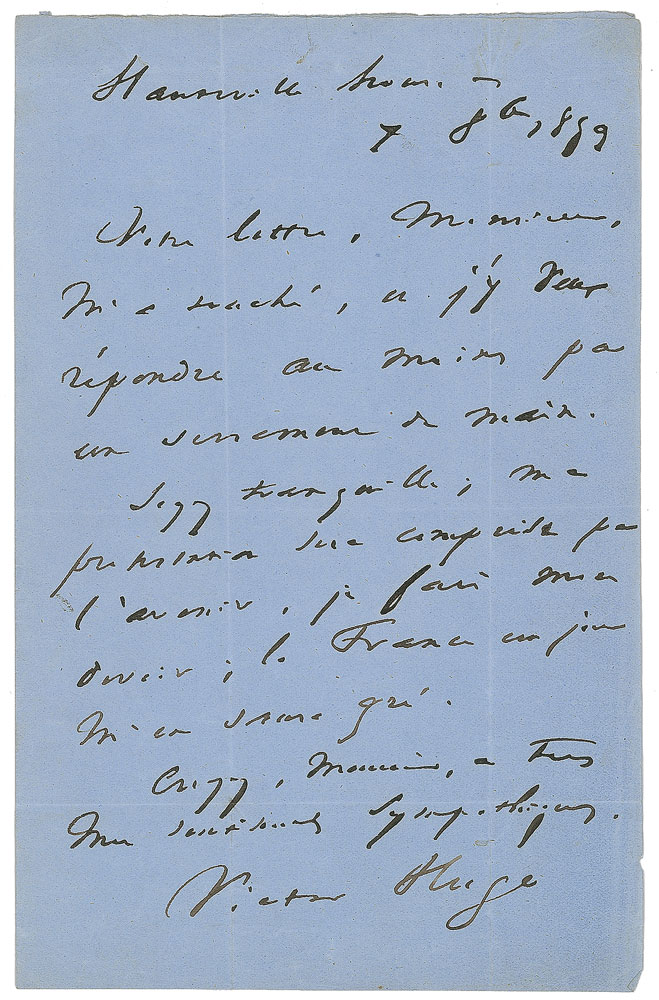 Hauteville house –
7 8bre 1859
Votre lettre, Monsieur,
m'a touché, et j'y veux
répondre au moins par
un serrement de main.
Soyez tranquille ; ma
protestation sera comprise par
l'avenir, je fais mon
devoir ; la France un jour
m'en saura gré.
Croyez, Monsieur, à tous
mes sentiments sympathiques.
Victor Hugo